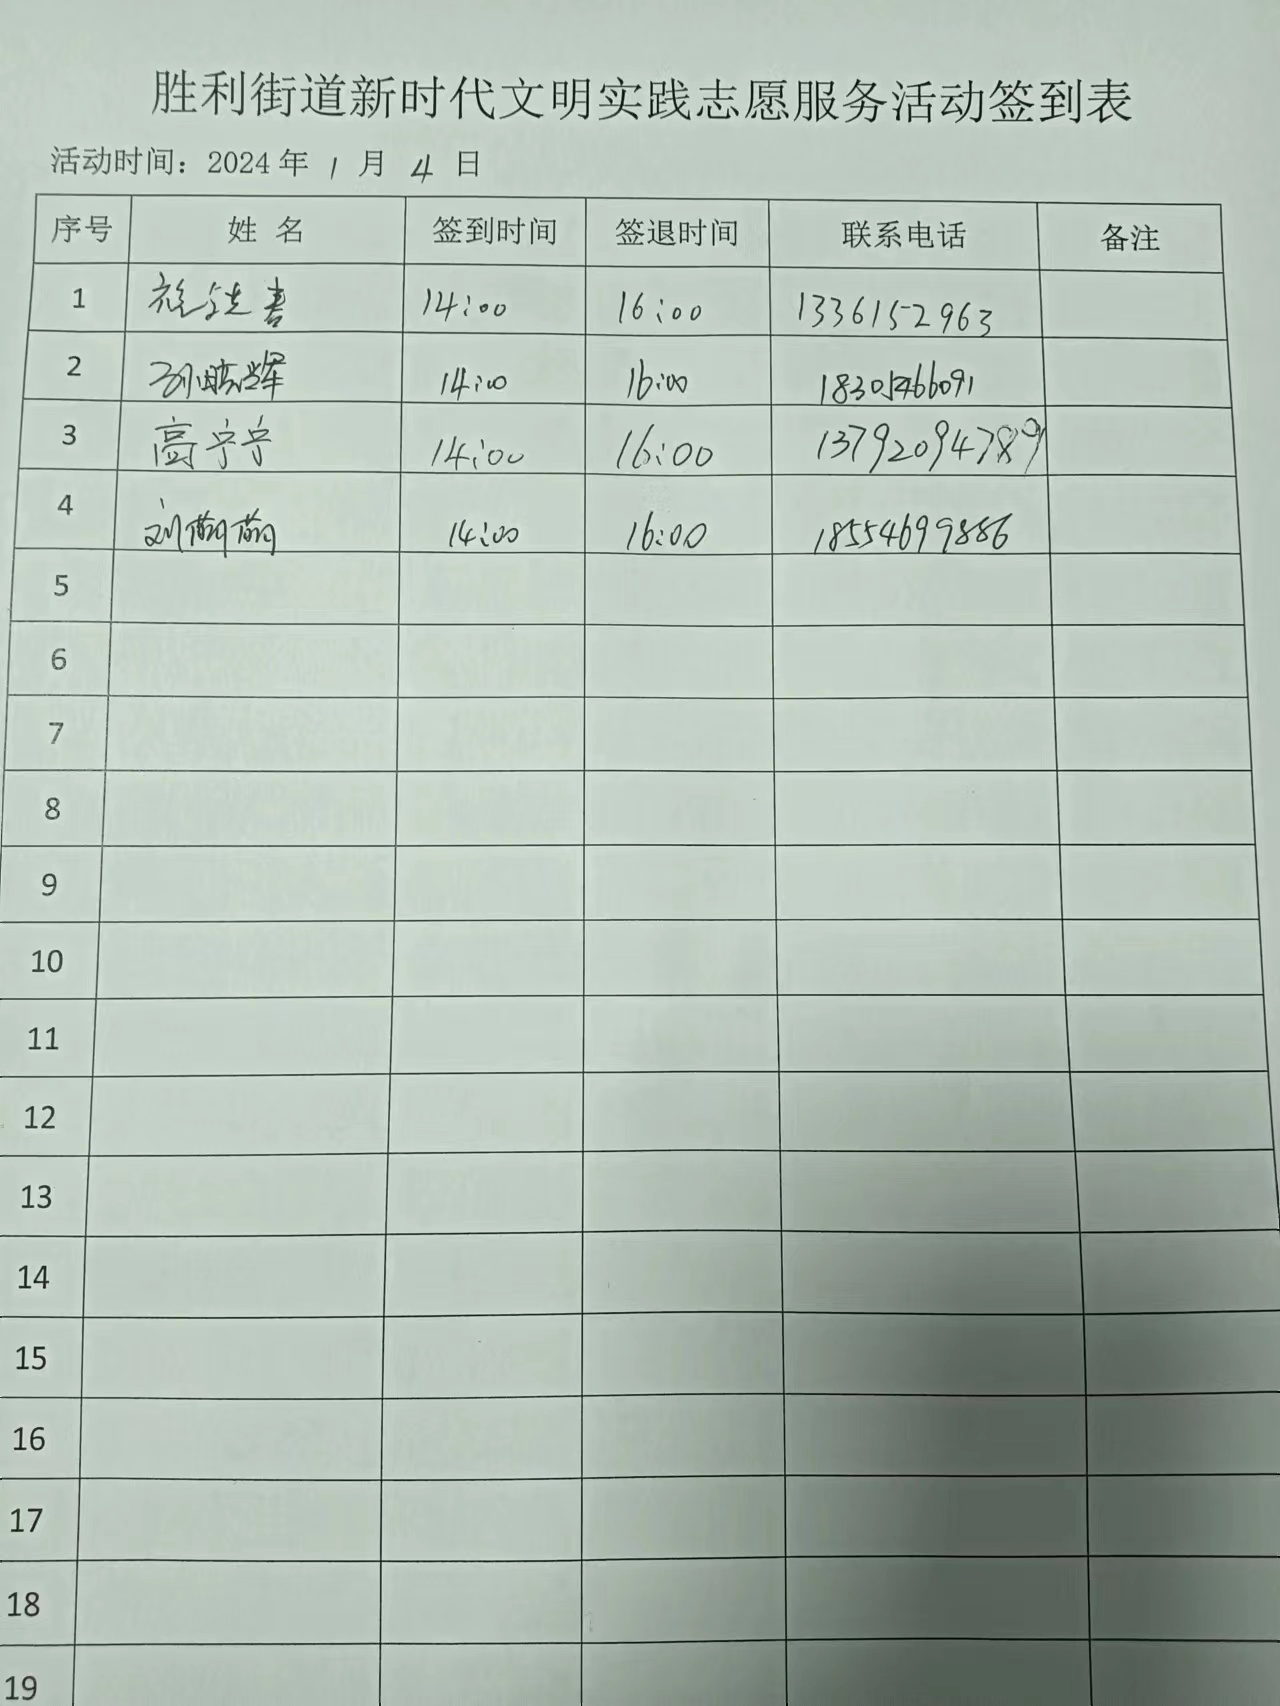 胜利街道新时代文明实践志愿服务活动签到表
活动时间：2024 年 1 月 4 日
序号 姓 名 签到时间 签退时间 联系电话 备注
1 14:00 16:00 13361552963
2 14:00 16:00 18305466091
3 高宁宁 14:00 16:00 13792094789
4 刘萌萌 14:00 16:00 18554699886
5
6
7
8
9
10
11
12
13
14
15
16
17
18
19